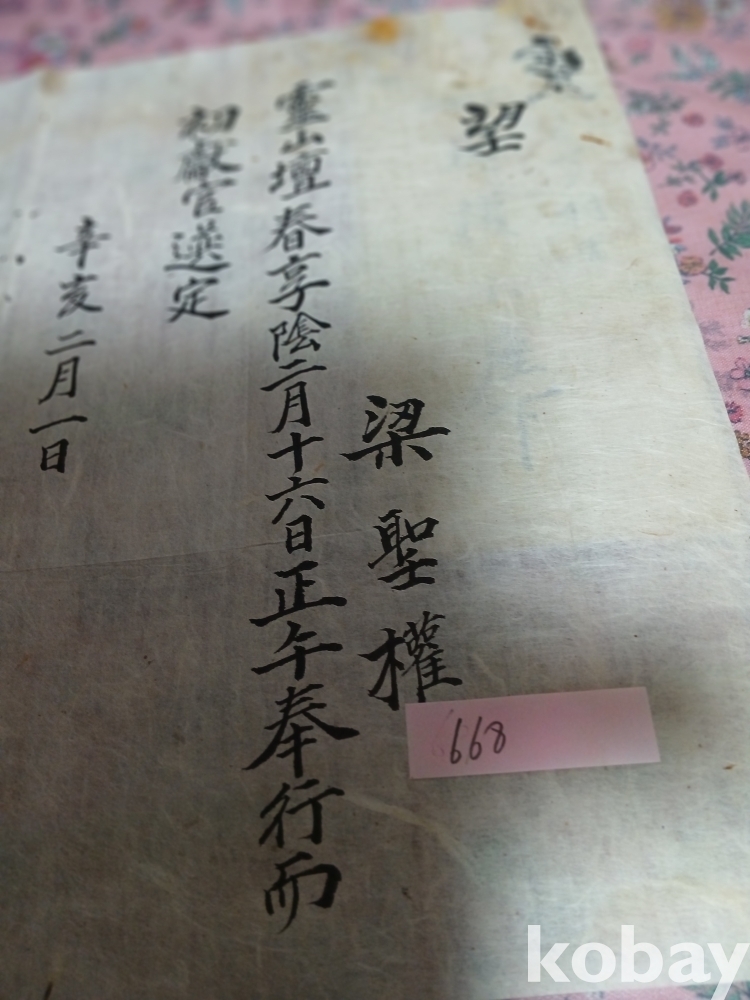 望
梁聖權
靈山壇春享陰二月十六日正午奉行而
初獻官選定
辛亥二月一日
668
kobay